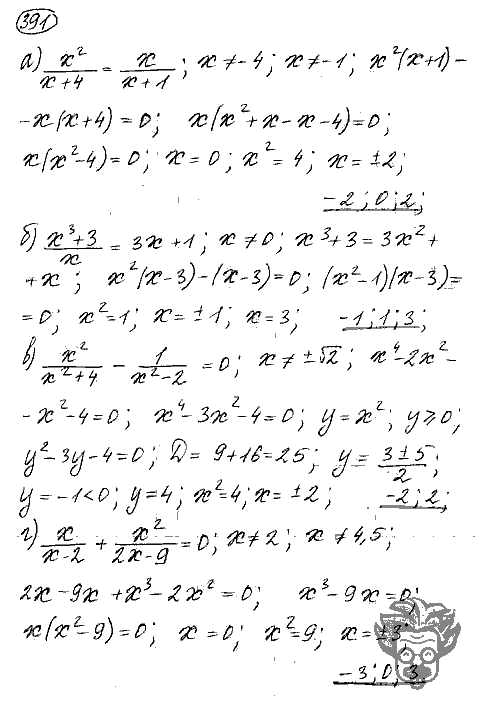 391
а) x²/(x+4) = x/(x+1); x ≠ -4; x ≠ -1; x²(x+1) -
- x(x+4) = 0; x(x²+x-x-4) = 0;
x(x²-4) = 0; x = 0; x² = 4; x = ±2;
-2; 0; 2;
б) (x³+3)/x = 3x+1; x ≠ 0; x³+3 = 3x² +
+x; x²(x-3)-(x-3) = 0; (x²-1)(x-3) =
= 0; x² = 1; x = ±1; x = 3; -1; 1; 3;
в) x²/(x²+4) - 1/(x²-2) = 0; x ≠ ±√2; x⁴-2x² -
- x²-4 = 0; x⁴-3x²-4 = 0; y = x²; y ≥ 0;
y²-3y-4 = 0; D = 9+16 = 25; y = (3±5)/2;
y = -1 < 0; y = 4; x² = 4; x = ±2; -2; 2;
г) x/(x-2) + x²/(2x-9) = 0; x ≠ 2; x ≠ 4,5;
2x-9x+x³-2x² = 0; x³-9x = 0;
x(x²-9) = 0; x = 0; x² = 9; x = ±3;
-3; 0; 3